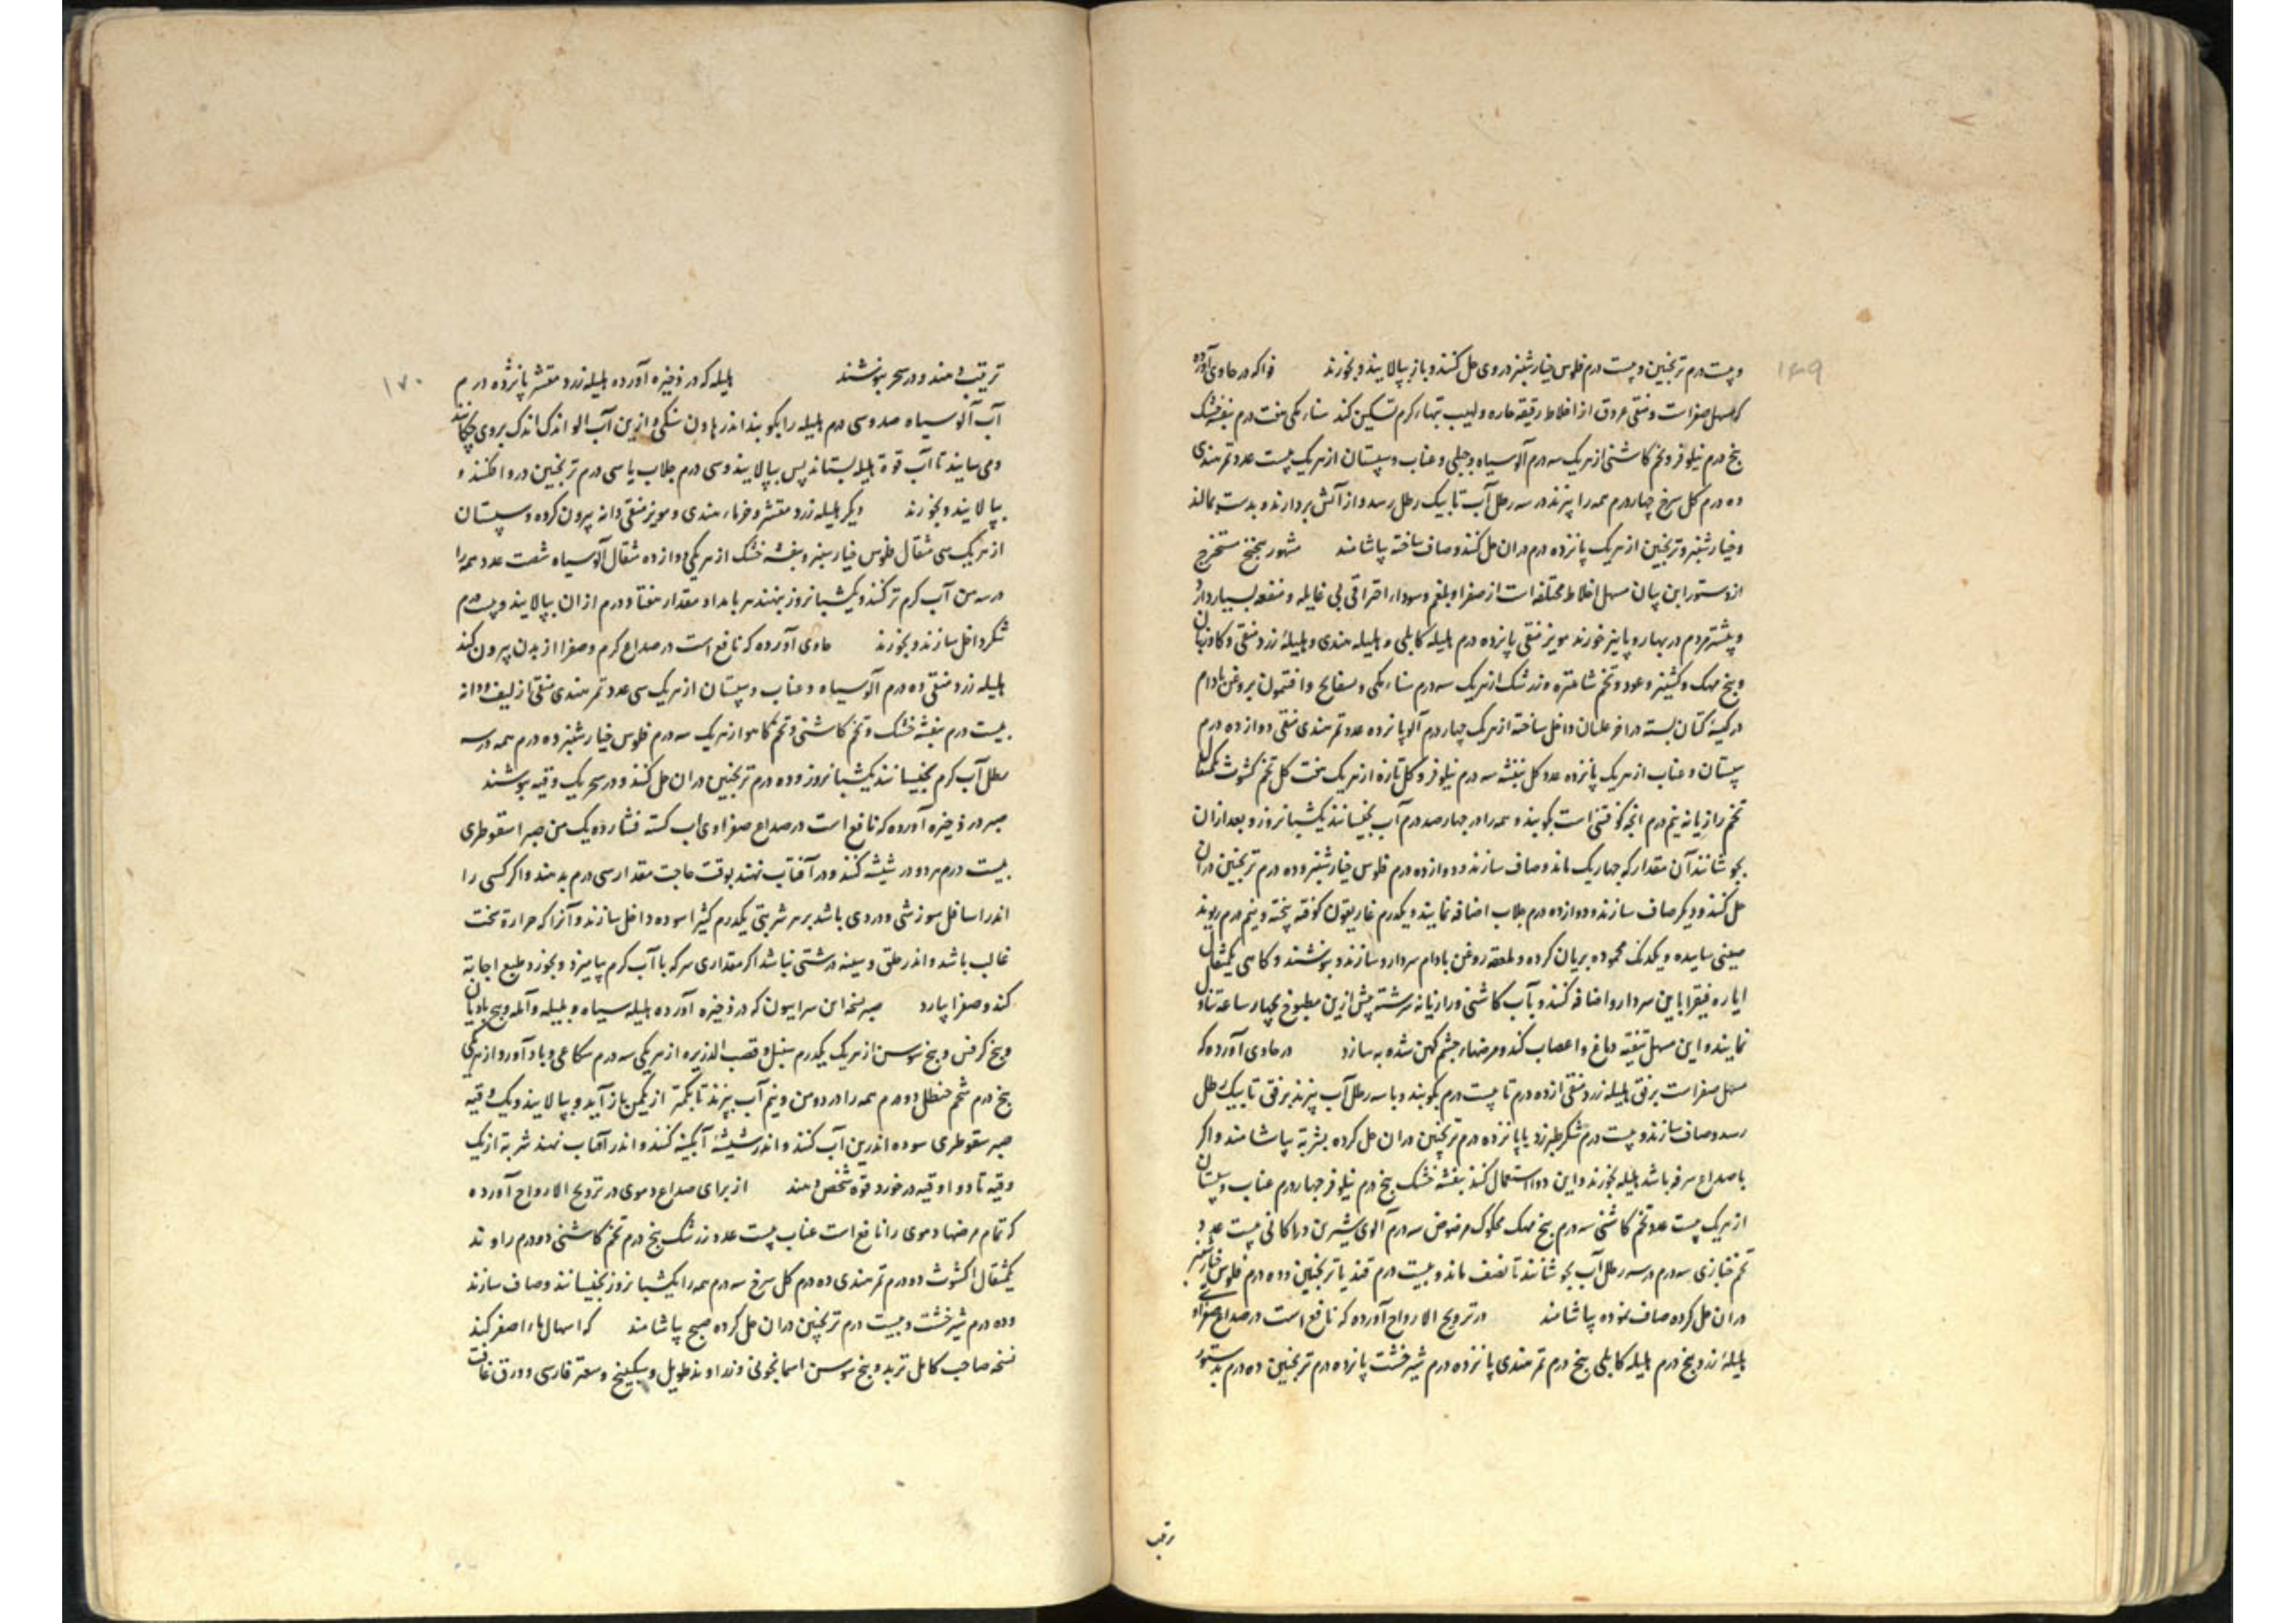 ۱۶۹
و بیست درم ترنجبین و بیست درم فلوس خیارشنبر در وی حل کنند و باز بپالایند و بخورند فواکه در حاوی آورده
که مسهل صفراست و منقی عروق از اخلاط رقیقه حاره و لهیب تبهاء کرم تسکین کند سناء مکی هفت درم بنفشه خشک
پنج درم نیلوفر و تخم کاشنی از هر یک سه درم آلو سیاه و جبلی و عناب و سپستان از هر یک بیست عدد تمر هندی
ده درم کل سرخ چهار درم همه را بپزند در سه رطل آب تا بیک رطل رسد و از آتش بردارند و بدست بمالند
و خیارشنبر و ترنجبین از هر یک پانزده درم در ان حل کنند و صاف ساخته بیاشامند مشهور
از دستور این بیان مسهل اخلاط مختلفه است از صفرا و بلغم و سوداء احتراقی بی غایله و منفعه بسیار دارد
و بیشتر مردم در بهار و پاییز خورند مویز منقی پانزده درم هلیله کابلی و هلیله هندی و هلیلهٔ زرد منقی و کاوزبان
و بیخ مهک و کشنیز و عود و تخم شاهتره و زرشک از هر یک سه درم سناء مکی و بسفایج و افتیمون بروغن بادام
در کیسهٔ کتان بسته در اخر غلیان داخل ساخته از هر یک چهار درم آلو پانزده عدد تمر هندی منقی دوازده درم
سپستان و عناب از هر یک پانزده عدد کل بنفشه سه درم نیلوفر و کل تازه از هر یک هفت کل تخم کشوث یکمثقال
تخم رازیانه نیم درم انچه کوفتنی است بکوبند و همه را در چهار صد درم آب بخیسانند یکشبانروز و بعد ازان
بجوشانند آن مقدار که چهار یک ماند و صاف سازند و دوازده درم فلوس خیارشنبر و ده درم ترنجبین دران
حل کنند و دیکر صاف سازند و دوازده درم جلاب اضافه نمایند و یکدرم غاریقون کوفته پخته و نیم درم ریوند
صینی ساییده و یکدنک محموده بریان کرده و ملعقه روغن بادام سردارو سازند و بنوشند و کاهی یکمثقال
ایاره فیقرا باین سردارو اضافه کنند و بآب کاشنی و رازیانه سرشته پیش ازین مطبوخ بچهار ساعت تناول
نمایند و این مسهل تنقیه دماغ و اعصاب کند و مرضهاء چشم کهن شده به سازد در حاوی آورده که
مسهل صفراست برفق هلیله زرد منقی از ده درم تا بیست درم بکوبند و با سه رطل آب بپزند برفق تا بیک رطل
رسد و صاف سازند و بیست درم شکر طبرزد یا پانزده درم ترنجبین دران حل کرده بشربة بیاشامند و اکر
با صداع سرفه باشد هلیله نخورند و این دوا استعمال کنند بنفشه خشک پنج درم نیلوفر چهار درم عناب و سپستان
از هر یک بیست عدد تخم کاشنی سه درم بیخ مهک محکوک مرضوض سه درم آلوی شیرین دراکانی بیست عدد و
تخم خبازی سه درم در سه رطل آب بجوشانند تا نصف ماند و بیست درم قند یا ترنجبین و ده درم فلوس خیارشنبر
دران حل کرده صاف نموده بیاشامند در ترویح الارواح آورده که نافع است در صداع صفراوی
هلیلهٔ زرد پنج درم هلیله کابلی پنج درم تمر هندی پانزده درم شیرخشت پانزده درم ترنجبین ده درم بدستور
ترتیب
۱۷۰
ترتیب دهند و در سحر بنوشند هلیله که در ذخیره آورده هلیله زرد مقشر پانزده درم
آب آلو سیاه صد و سی درم هلیله را بکوبند اندر هاون سنکی و ازین آب الو اندک اندک بروی چکانند
و می سایند تا آب قوة هلیله بستاند پس بپالایند و سی درم جلاب یا سی درم ترنجبین در وا فکنند و
بپالایند و بخورند دیکر هلیله زرد مقشر و خرماء هندی و مویز منقی دانه بیرون کرده و سپستان
از هر یک سی مثقال فلوس خیارشنبر و بنفشه خشک از هر یکی دوازده مثقال آلو سیاه شصت عدد همه را
در سه من آب کرم تر کنند و یکشبانروز بنهند هر بامداد مقدار هفتاد درم ازان بپالایند و بیست درم
شکر داخل سازند و بخورند حاوی آورده که نافع است در صداع کرم و صفرا از بدن بیرون کند
هلیله زرد منقی ده درم آلو سیاه و عناب و سپستان از هر یک سی عدد تمر هندی منقی از لیف و دانه
بیست درم بنفشه خشک و تخم کاشنی و تخم کاهو از هر یک سه درم فلوس خیارشنبر ده درم همه در سه
رطل آب کرم بخیسانند یکشبانروز و ده درم ترنجبین دران حل کنند و در سحر یک وقیه بنوشند
صبر در ذخیره آورده که نافع است در صداع صفراوی اب کسنه فشارده یک من صبر اسقوطری
بیست درم هر دو در شیشه کنند و در آفتاب نهند بوقت حاجت مقدار سی درم بدهند و اکر کسی را
اندر اسافل سوزشی و دردی باشد بر هر شربتی یکدرم کثیرا سوده داخل سازند و آنرا که حرارة سخت
غالب باشد و اندر حلق و سینه درشتی نباشد اکر مقداری سرکه با آب کرم بیامیزد و بخورد طبع اجابة
کند و صفرا بیارد صبر نسخه ابن سرابیون که در ذخیره آورده هلیله سیاه و بلیله و آمله و بیخ بادیان
و بیخ کرفس و بیخ سوسن از هر یک یکدرم سنبل و قصب الذریره از هر یکی سه درم شکاعی و بادآورد از هر یکی
پنج درم شحم حنظل دو درم همه را در دو من و نیم آب بپزند تا بکمتر از یکمن باز آید و بپالایند و یک وقیه
صبر سقوطری سوده اندرین آب کنند و اندر شیشهٔ آبکینه کنند و اندر آفتاب نهند شربة از یک
وقیه تا دو اوقیه در خورد قوة شخص دهند از برای صداع دموی در ترویح الارواح آورده
که تمام مرضهاء دموی را نافع است عناب بیست عدد زرشک پنج درم تخم کاشنی دو درم راوند
یکمثقال اکشوث دو درم تمر هندی ده درم کل سرخ سه درم همه را یکشبانروز بخیسانند و صاف سازند
و ده درم شیرخشت و بیست درم ترنجبین دران حل کرده صبح بیاشامند که اسهال ماء اصفر کند
نسخه صاحب کامل تربد و بیخ سوسن اسمانجونی و زراوند طویل و سکبینج و سعتر فارسی و ورق غافت